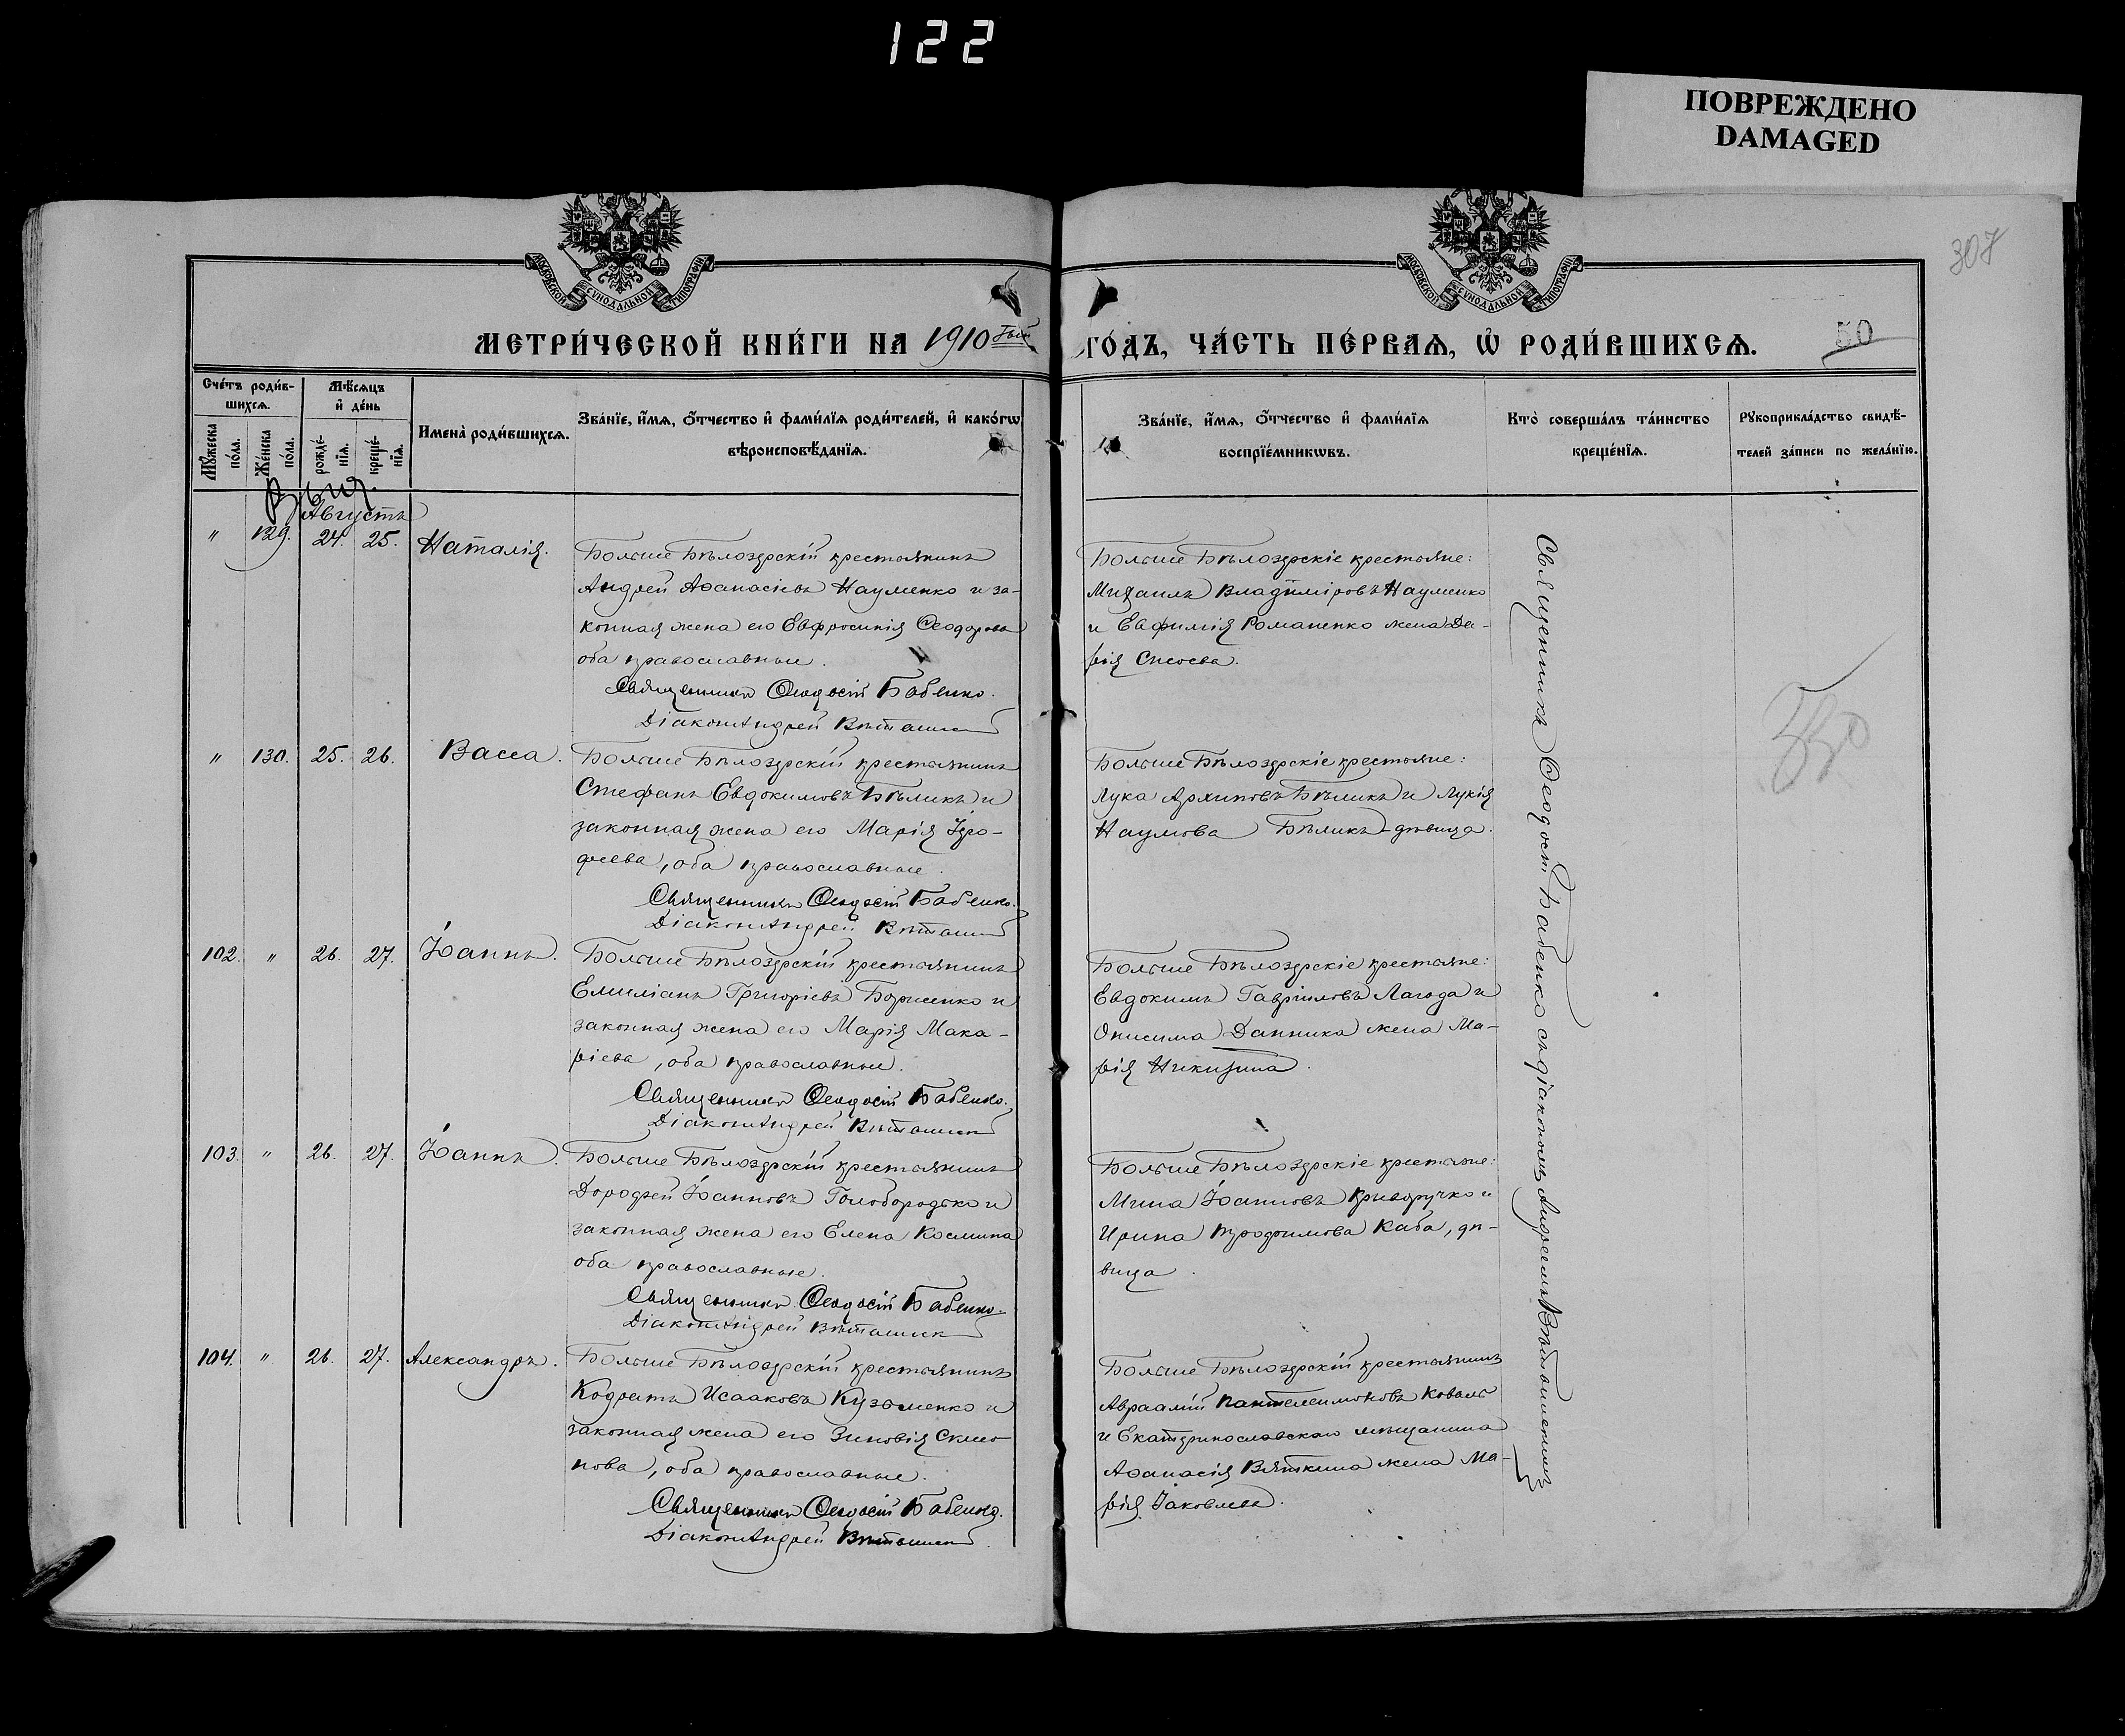 122
ПОВРЕЖДЕНО
DAMAGED
307
МОСКОВСКОЙ СѴНОДАЛЬНОЙ ТИПОГРАФІИ
МОСКОВСКОЙ СѴНОДАЛЬНОЙ ТИПОГРАФІИ
МЕТРИ́ЧЕСКОЙ КНИ́ГИ НА 1910 ГО́ДЪ, ЧА́СТЬ ПЕ́РВАѦ, Ѡ РОДИ́ВШИХСѦ.
50
Сче́тъ роди́в-
шихсѧ.
Мѣ́сѧцъ
и҆ де́нь
Мꙋ́жеска
по́ла.
Же́нска
по́ла.
рожде́-
нїѧ.
креще́-
нїѧ.
Имена̀ роди́вшихсѧ.
Зва́нїе, и҆́мѧ, ѻ҆́тчество и҆ фами́лїѧ роди́телей, и҆ како́гѡ
вѣроисповѣ́данїѧ.
Зва́нїе, и҆́мѧ, ѻ҆́тчество и҆ фами́лїѧ
воспрїе́мникѡвъ.
Кто̀ соверша́лъ та́инство
креще́нїѧ.
Рꙋкоприкла́дство свидѣ́-
телей за́писи по жела́нїю.
Августъ
" 129. 24. 25. Наталія.
Больше Бѣлозерскій крестьянинъ
Андрей Аѳанасіевъ Науменко и за-
конная жена его Евфросинія Ѳеодорова
оба православные.
Священникъ Ѳеодосій Бабенко.
Діаконъ Андрей
Больше Бѣлозерскіе крестьяне:
Михаилъ Владиміровъ Науменко
и Евфимія Романенко жена Да-
рія Сисоева.
" 130. 25. 26. Васса.
Больше Бѣлозерскій крестьянинъ
Стефанъ Евдокимовъ Бѣликъ и
законная жена его Марія Іеро-
феева, оба православные.
Священникъ Ѳеодосій Бабенко.
Діаконъ Андрей
Больше Бѣлозерскіе крестьяне:
Лука Архиповъ Бѣликъ и Лукія
Наумова Бѣликъ дѣвица.
102. " 26. 27. Іоаннъ.
Больше Бѣлозерскій крестьянинъ
Емиліанъ Григоріевъ Борисенко и
законная жена его Марія Мака-
ріева, оба православные.
Священникъ Ѳеодосій Бабенко.
Діаконъ Андрей
Больше Бѣлозерскіе крестьяне:
Евдокимъ Гавріиловъ Лагода и
Онисима Данника жена Ма-
рія Никитина.
103. " 26. 27. Іоаннъ.
Больше Бѣлозерскій крестьянинъ
Дороѳей Іоанновъ Голобородько и
законная жена его Елена Космина
оба православные.
Священникъ Ѳеодосій Бабенко.
Діаконъ Андрей
Больше Бѣлозерскіе крестьяне:
Мина Іоанновъ Криворучко и
Ирина Трофимова Каба, дѣ-
вица.
104. " 26. 27. Александръ.
Больше Бѣлозерскій крестьянинъ
Кодратъ Исааковъ Кузьменко и
законная жена его Зиновія
нова, оба православные.
Священникъ Ѳеодосій Бабенко.
Діаконъ Андрей
Больше Бѣлозерскій крестьянинъ
Авраамій Пантелеимоновъ Коваль
и Екатеринославскаго мѣщанина
Аѳанасія Вяткина жена Ма-
рія Іаковлева.
Священникъ Ѳеодосій Бабенко съ діакономъ Андреемъ